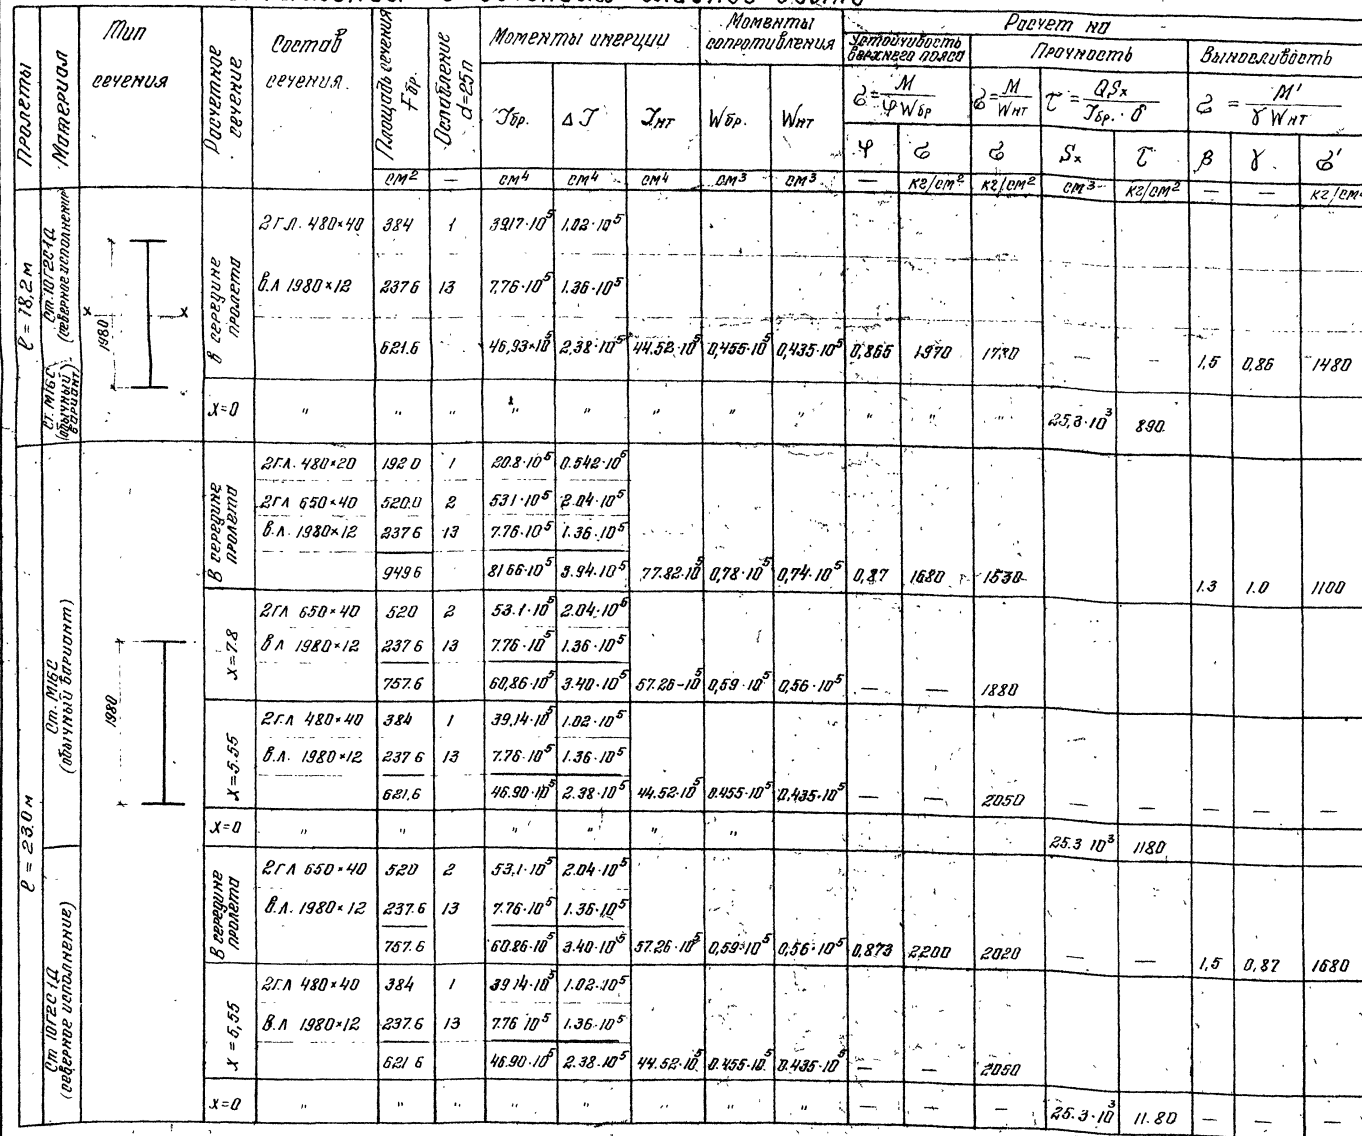 Пролеты
Материал
Тип сечения
Расчетное сечение
Состав сечения.
Площадь сечения Fбр.
Ослабление d=25п
Моменты инерции
Моменты сопротивления
Расчет на
Устойчивость верхнего пояса
Прочность
Выносливость
Jбр. ΔJ Jнт Wбр. Wнт
σ = M / φWбр
σ = M / Wнт
τ = QSx / Jбр.·δ
σ = M' / γWнт
φ σ σ Sx τ β γ. σ'
см² — см⁴ см⁴ см⁴ см³ см³ — кг/см² кг/см² см³ кг/см² — — кг/см
ℓ = 18,2 м
Ст. 10Г2С1Д (северное исполнение)
Ст. М16С (обычный вариант)
1980
x x
В середине пролета
2 г.л. 480×40 384 1 39,17·10⁵ 1,02·10⁵
в.л 1980×12 237.6 13 7,76·10⁵ 1.36·10⁵
621.6 46,93×10⁵ 2,38·10⁵ 44.52·10⁵ 0,455·10⁵ 0,435·10⁵ 0,865 1970 1780 — — 1,5 0,86 1480
x=0 " " " " " " " " " " " 25,3·10³ 890
ℓ = 23,0 м
Ст. М16С (обычный вариант)
1980
В середине пролета
2г.л. 480×20 192 0 1 20.8·10⁵ 0.542·10⁵
2гл 650×40 520.0 2 531·10⁵ 2.04·10⁵
в.л. 1980×12 2376 13 7.76·10⁵ 1.36·10⁵
9496 8166·10⁵ 3.94·10⁵ 77.82·10⁵ 0,78·10⁵ 0,74·10⁵ 0,87 1680 1530 1.3 1.0 1100
x=7.8
2гл 650×40 520 2 53.1·10⁵ 2.04·10⁵
в л 1980×12 237 6 13 7.76·10⁵ 1.36·10⁵
757.6 60,86·10⁵ 3.40·10⁵ 57.26-10⁵ 0,59·10⁵ 0,56·10⁵ — — 1880
x=5.55
2г.л 480×40 384 1 39,14·10⁵ 1.02·10⁵
в.л. 1980×12 237 6 13 7.76·10⁵ 1.36·10⁵
621,6 46.90·10⁵ 2.38·10⁵ 44.52·10⁵ 0.455·10⁵ 0.435·10⁵ — — 2050 — — — — —
x=0 " " " " " " 25.3 10³ 1180
Ст 10Г2С1Д (северное исполнение)
В середине пролета
2гл 650×40 520 2 53,1·10⁵ 2.04·10⁵
в.л. 1980×12 237.6 13 7.76·10⁵ 1.36·10⁵
757.6 60.86·10⁵ 3.40·10⁵ 57.26·10⁵ 0,59·10⁵ 0,56·10⁵ 0,873 2200 2020 — — 1,5 0,87 1680
x=5,55
2гл 480×40 384 1 39 14·10⁵ 1.02·10⁵
в.л 1980×12 237.6 13 7.76 10⁵ 1.36·10⁵
621 6 46.90·10⁵ 2.38·10⁵ 44.52·10⁵ 0.455·10⁵ 0.435·10⁵ — — 2050
x=0 " " " " " " " " — — — 25.3·10³ 11.80 — — —